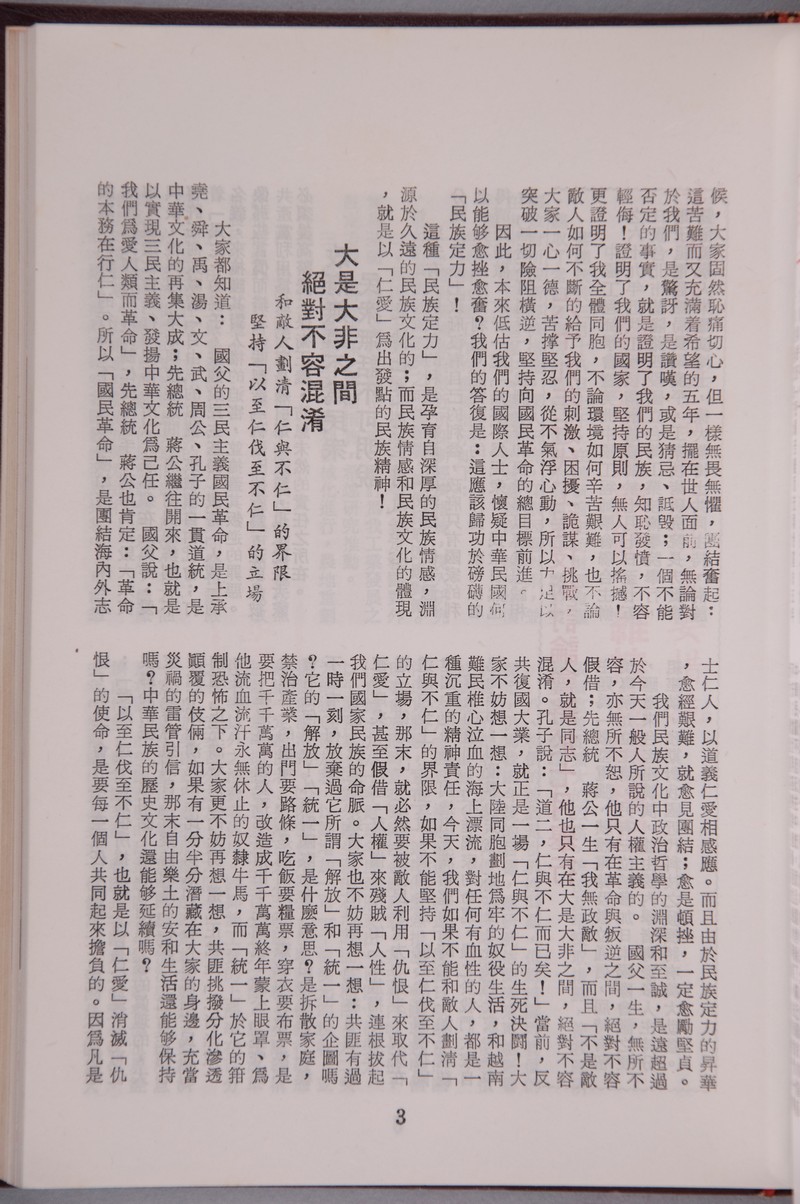 候，大家固然恥痛切心，但一樣無畏無懼，團結奮起：
這苦難而又充滿着希望的五年，擺在世人面前，無論對
於我們，是驚訝，是讚嘆，或是猜忌、詆毀；一個不能
否定的事實，就是證明了我們的民族，知恥發憤，不容
輕侮！證明了我們的國家，堅持原則，無人可以搖撼！
更證明了我全體同胞，不論環境如何辛苦艱難，也不論
敵人如何不斷的給予我們的刺激、困擾、詭謀、挑戰，
大家一心一德，苦撐堅忍，從不氣浮心動，所以力足以
突破一切險阻橫逆，堅持向國民革命的總目標前進。
因此，本來低估我們的國際人士，懷疑中華民國何
以能够愈挫愈奮？我們的答復是：這應該歸功於磅礴的
「民族定力」！
這種「民族定力」，是孕育自深厚的民族情感，淵
源於久遠的民族文化的；而民族情感和民族文化的體現
，就是以「仁愛」爲出發點的民族精神！
大是大非之間
絕對不容混淆
和敵人劃清「仁與不仁」的界限
堅持「以至仁伐至不仁」的立場
大家都知道：　國父的三民主義國民革命，是上承
堯、舜、禹、湯、文、武、周公、孔子的一貫道統，是
中華文化的再集大成；先總統　蔣公繼往開來，也就是
以實現三民主義、發揚中華文化爲己任。　國父說：「
我們爲愛人類而革命」，先總統　蔣公也肯定：「革命
的本務在行仁」。所以「國民革命」，是團結海內外志
士仁人，以道義仁愛相感應。而且由於民族定力的昇華
，愈經艱難，就愈見團結；愈是頓挫，一定愈勵堅貞。
我們民族文化中政治哲學的淵深和至誠，是遠超過
於今天一般人所說的人權主義的。　國父一生，無所不
容，亦無所不恕，他只有在革命與叛逆之間，絕對不容
假借；先總統　蔣公一生「我無政敵」，而且「不是敵
人，就是同志」，他也只有在大是大非之間，絕對不容
混淆。孔子說：「道二，仁與不仁而已矣！」當前，反
共復國大業，就正是一場「仁與不仁」的生死決鬪！大
家不妨想一想：大陸同胞劃地爲牢的奴役生活，和越南
難民椎心泣血的海上漂流，對任何有血性的人，都是一
種沉重的精神責任，今天，我們如果不能和敵人劃清「
仁與不仁」的界限，如果不能堅持「以至仁伐至不仁」
的立場，那末，就必然要被敵人利用「仇恨」來取代「
仁愛」，甚至假借「人權」來殘賊「人性」，連根拔起
我們國家民族的命脈。大家也不妨再想一想：共匪有過
一時一刻，放棄過它所謂「解放」和「統一」的企圖嗎
？它的「解放」「統一」，是什麼意思？是拆散家庭，
禁治產業，出門要路條，吃飯要糧票，穿衣要布票，是
要把千千萬萬的人，改造成千千萬萬終年蒙上眼罩、爲
他流血流汗永無休止的奴隸牛馬，而「統一」於它的箝
制恐怖之下。大家更不妨再想一想，共匪挑撥分化滲透
顚覆的伎倆，如果有一分半分潛藏在大家的身邊，充當
災禍的雷管引信，那末自由樂土的安和生活還能够保持
嗎？中華民族的歷史文化還能够延續嗎？
「以至仁伐至不仁」，也就是以「仁愛」消滅「仇
恨」的使命，是要每一個人共同起來擔負的。因爲凡是
3